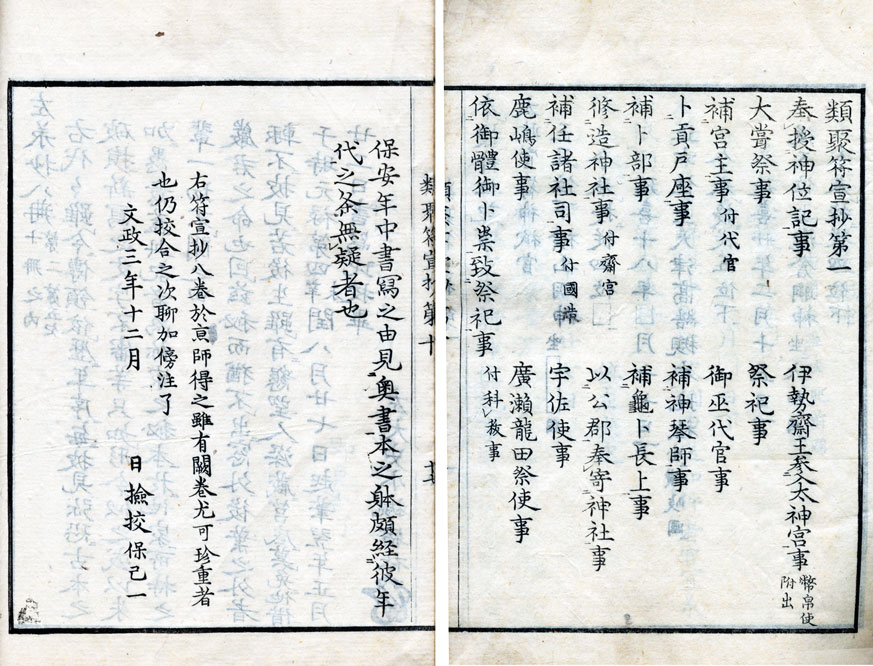 類聚符宣抄第一
奉授神位記事　伊勢齋王參入太神宮事 幣帛使附出
大嘗祭事　祭祀事
補宮主事 付代官　御巫代官事
卜貢戸座事　補神琴師事
補卜部事　補龜卜長上事
修造神社事 付齋宮　以公郡奉寄神社事
補任諸社司事 付國造　宇佐使事
鹿嶋使事　廣瀬龍田祭使事
依御體御卜祟致祭祀事 付科祓事
類聚符宣抄第
保安年中書寫之由見奥書本之躰頗経彼年
代之条無疑者也
右符宣抄八卷於京師得之雖有闕卷尤可珍重者
也仍挍合之次聊加傍注了
文政三年十二月　日撿挍保己一